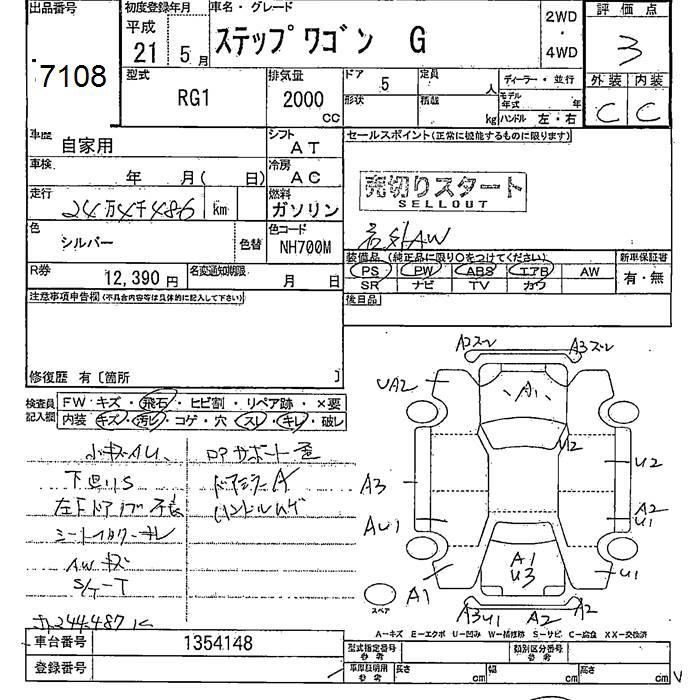 出品番号
7108
初度登録年月
平成
21 5月
車名・グレード
ステップワゴン G
2WD
・
4WD
評価点
3
外装 内装
C C
型式
RG1
排気量
2000
CC
ドア 5
定員 人
形状
積載 kg
ディーラー・並行
モデル年式 年
ハンドル 左・右
車歴 自家用
シフト AT
セールスポイント(正常に機能するものに限ります)
車検 年 月( 日)
冷房 AC
売切りスタート
SELLOUT
走行 24万4千486 km
燃料 ガソリン
社外AW
色 シルバー 色替
色コード NH700M
装備品(純正品に限り○をつけてください)
PS PW ABS エアB AW
SR ナビ TV カワ
新車保証書
有・無
R券 12,390円
名変通知期限 月 日
後日品
注意事項申告欄(不具合内容等は具体的に記入して下さい)
修復歴 有〔箇所 〕
検査員記入欄
FW キズ・飛石・ヒビ割・リペア跡・×要
内装 キズ・汚レ・コゲ・穴・スレ・キレ・破レ
小キズAU
下回りS
AWキズ
ドアミラーA
244,487
A2
A3
UA2
A1
U2
U2
A3
AU1
A2
U1
A1
U3
U1
A1
スペア
A3U1 A2 A2
A-キズ E-エクボ U-凹み W-補修跡 S-サビ C-腐食 XX-交換済
車台番号 1354148
登録番号
型式指定番号 参考
類別区分番号 参考
車庫証明用 参考
長さ cm 幅 cm 高さ cm